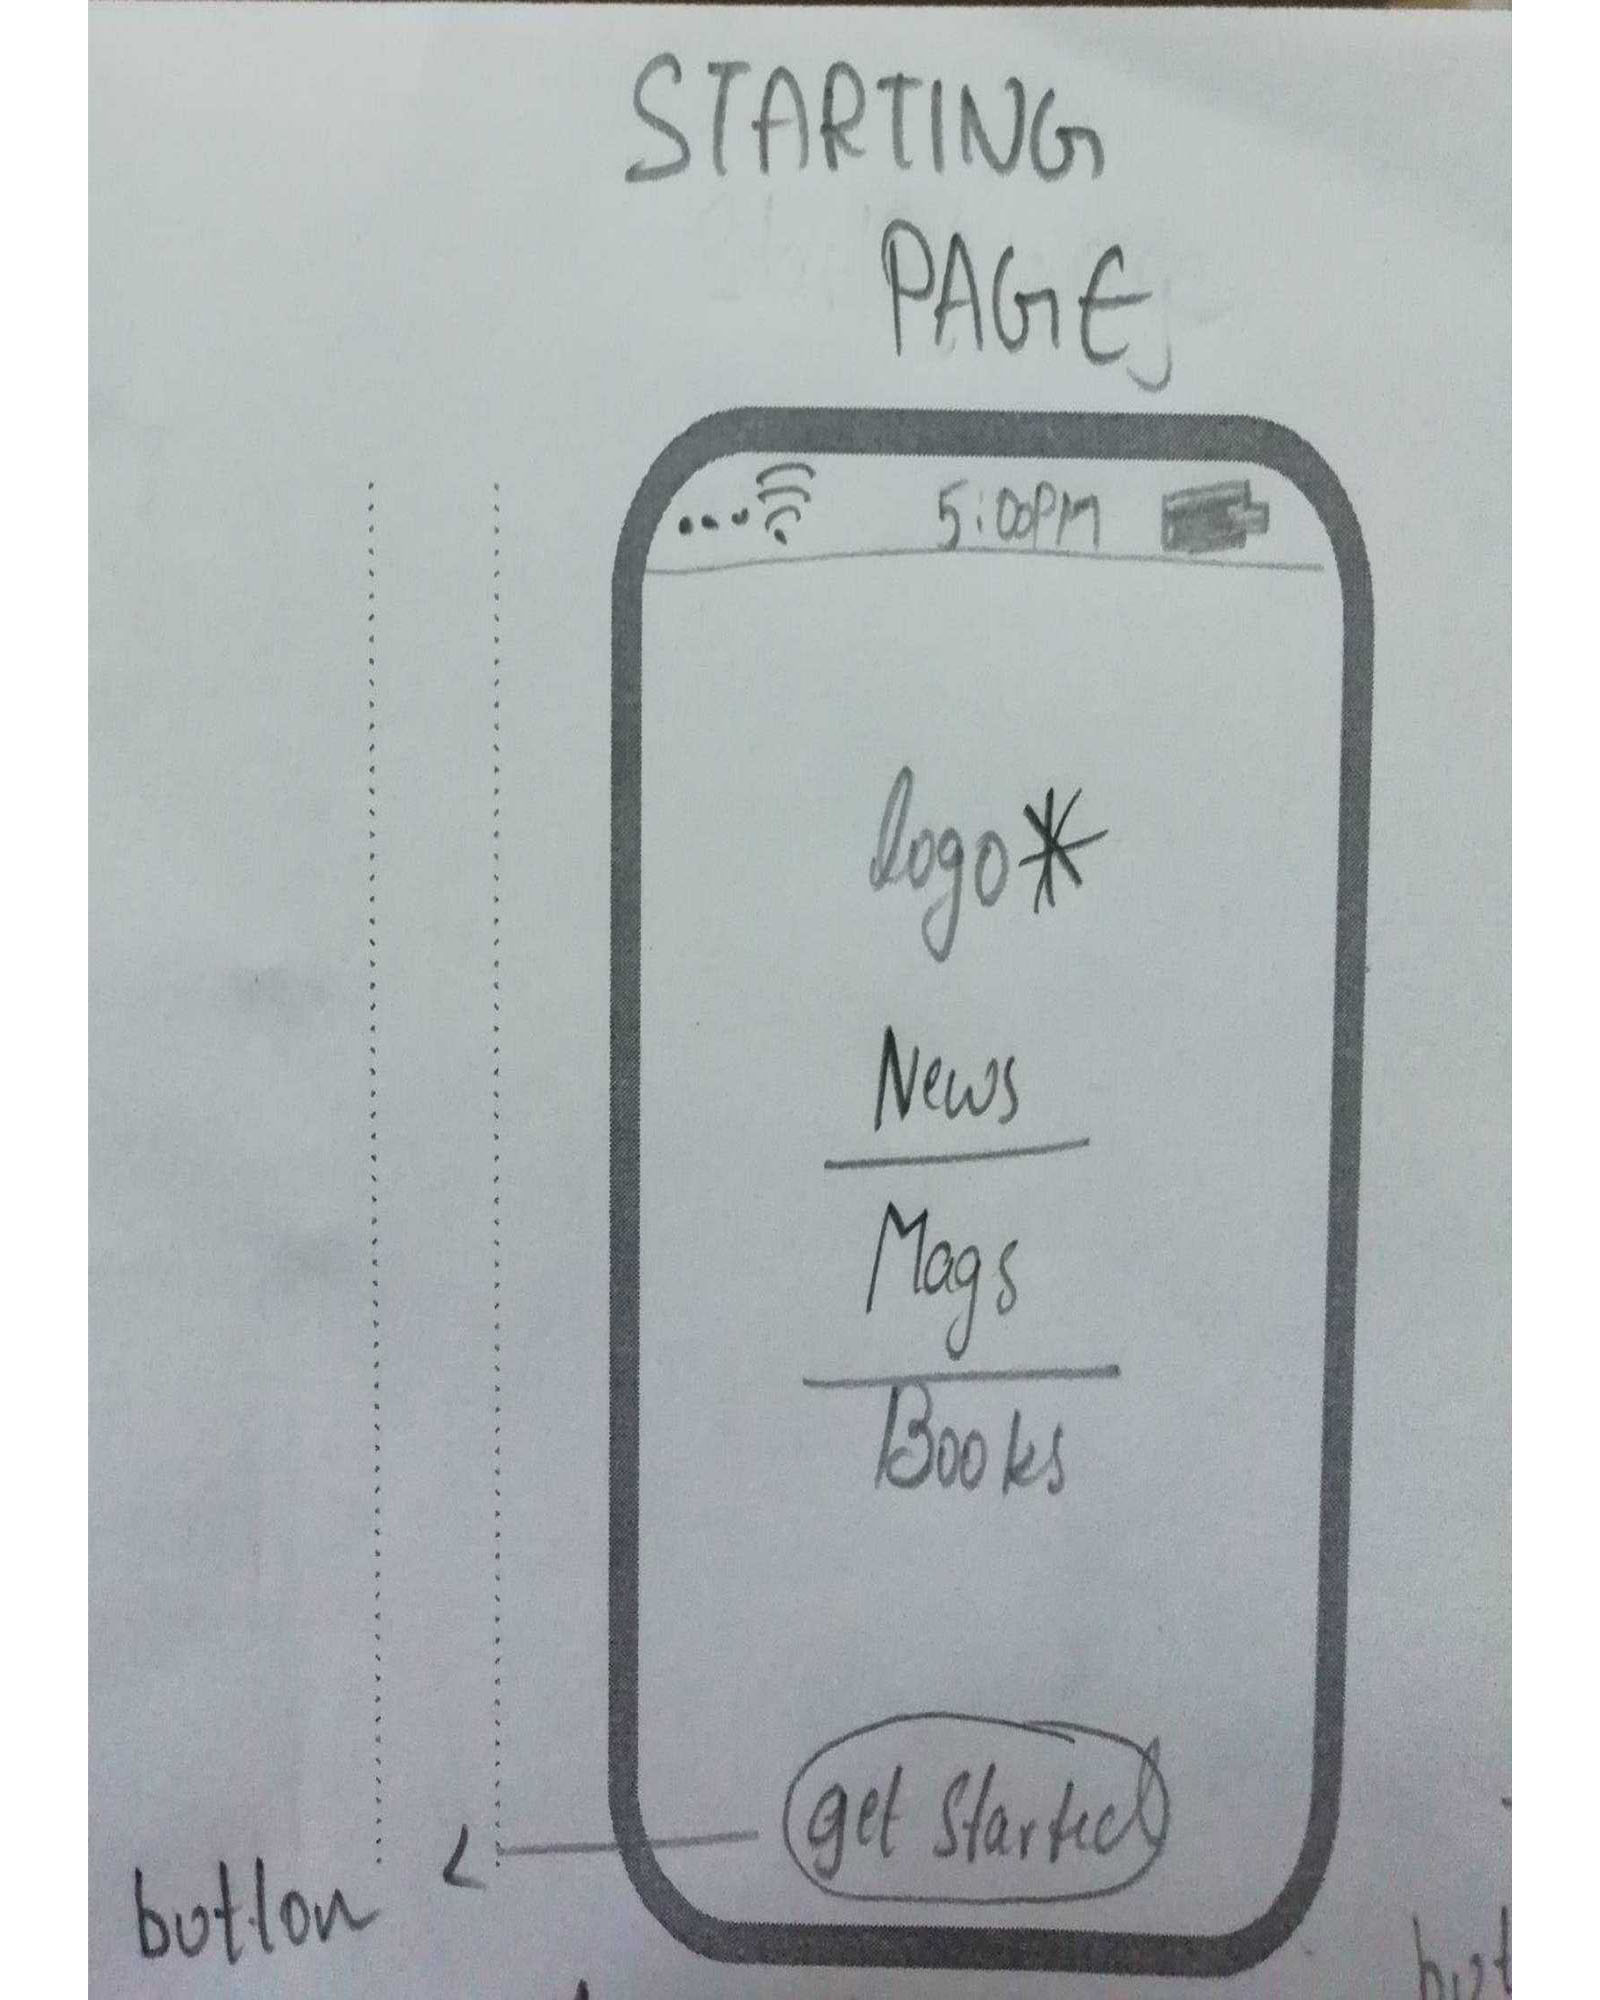 STARTING
PAGE
5:00PM
logo*
News
Mags
Books
get started
button